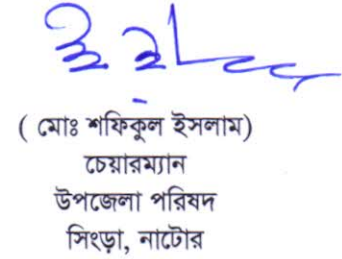 ( মোঃ শফিকুল ইসলাম)
চেয়ারম্যান
উপজেলা পরিষদ
সিংড়া, নাটোর